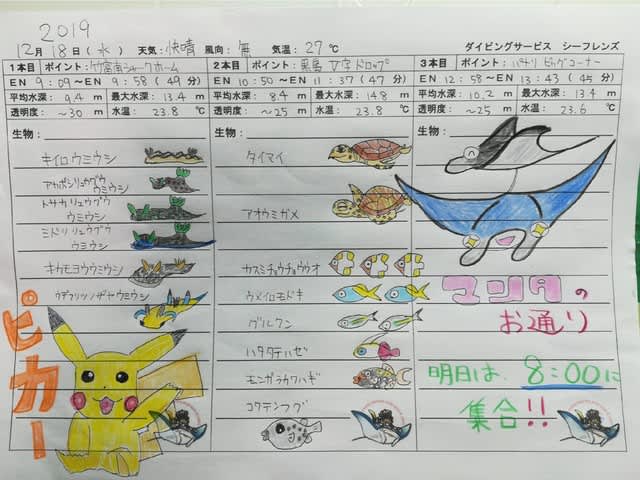 2019
12月18日(水) 天気:快晴 風向:無 気温:27℃ ダイビングサービス シーフレンズ
1本目 ポイント:竹富南シャークホーム
EN 9:09〜EN 9:58(49分)
平均水深: 9.4 m 最大水深: 13.4 m
透明度: 〜30 m 水温: 23.8 ℃
生物:
キイロウミウシ
アカボシリュウグウ
ウミウシ
トサカリュウグウ
ウミウシ
ミドリリュウグウ
ウミウシ
キカモヨウウミウシ
ウデフリツノザヤウミウシ
ピカー
2本目 ポイント:黒島 V字ドロップ
EN 10:50〜EN 11:37(47分)
平均水深: 8.4 m 最大水深: 14.8 m
透明度: 〜25 m 水温: 23.8 ℃
生物:
タイマイ
アオウミガメ
カスミチョウチョウウオ
ウメイロモドキ
グルクン
ハタタテハゼ
モンガラカワハギ
コクテンフグ
3本目 ポイント:パナリ ビッグコーナー
EN 12:58〜EN 13:43(45分)
平均水深: 10.2 m 最大水深: 13.4 m
透明度: 〜25 m 水温: 23.6 ℃
生物:
マンタの
お通り
明日は、8:00に
集合!!